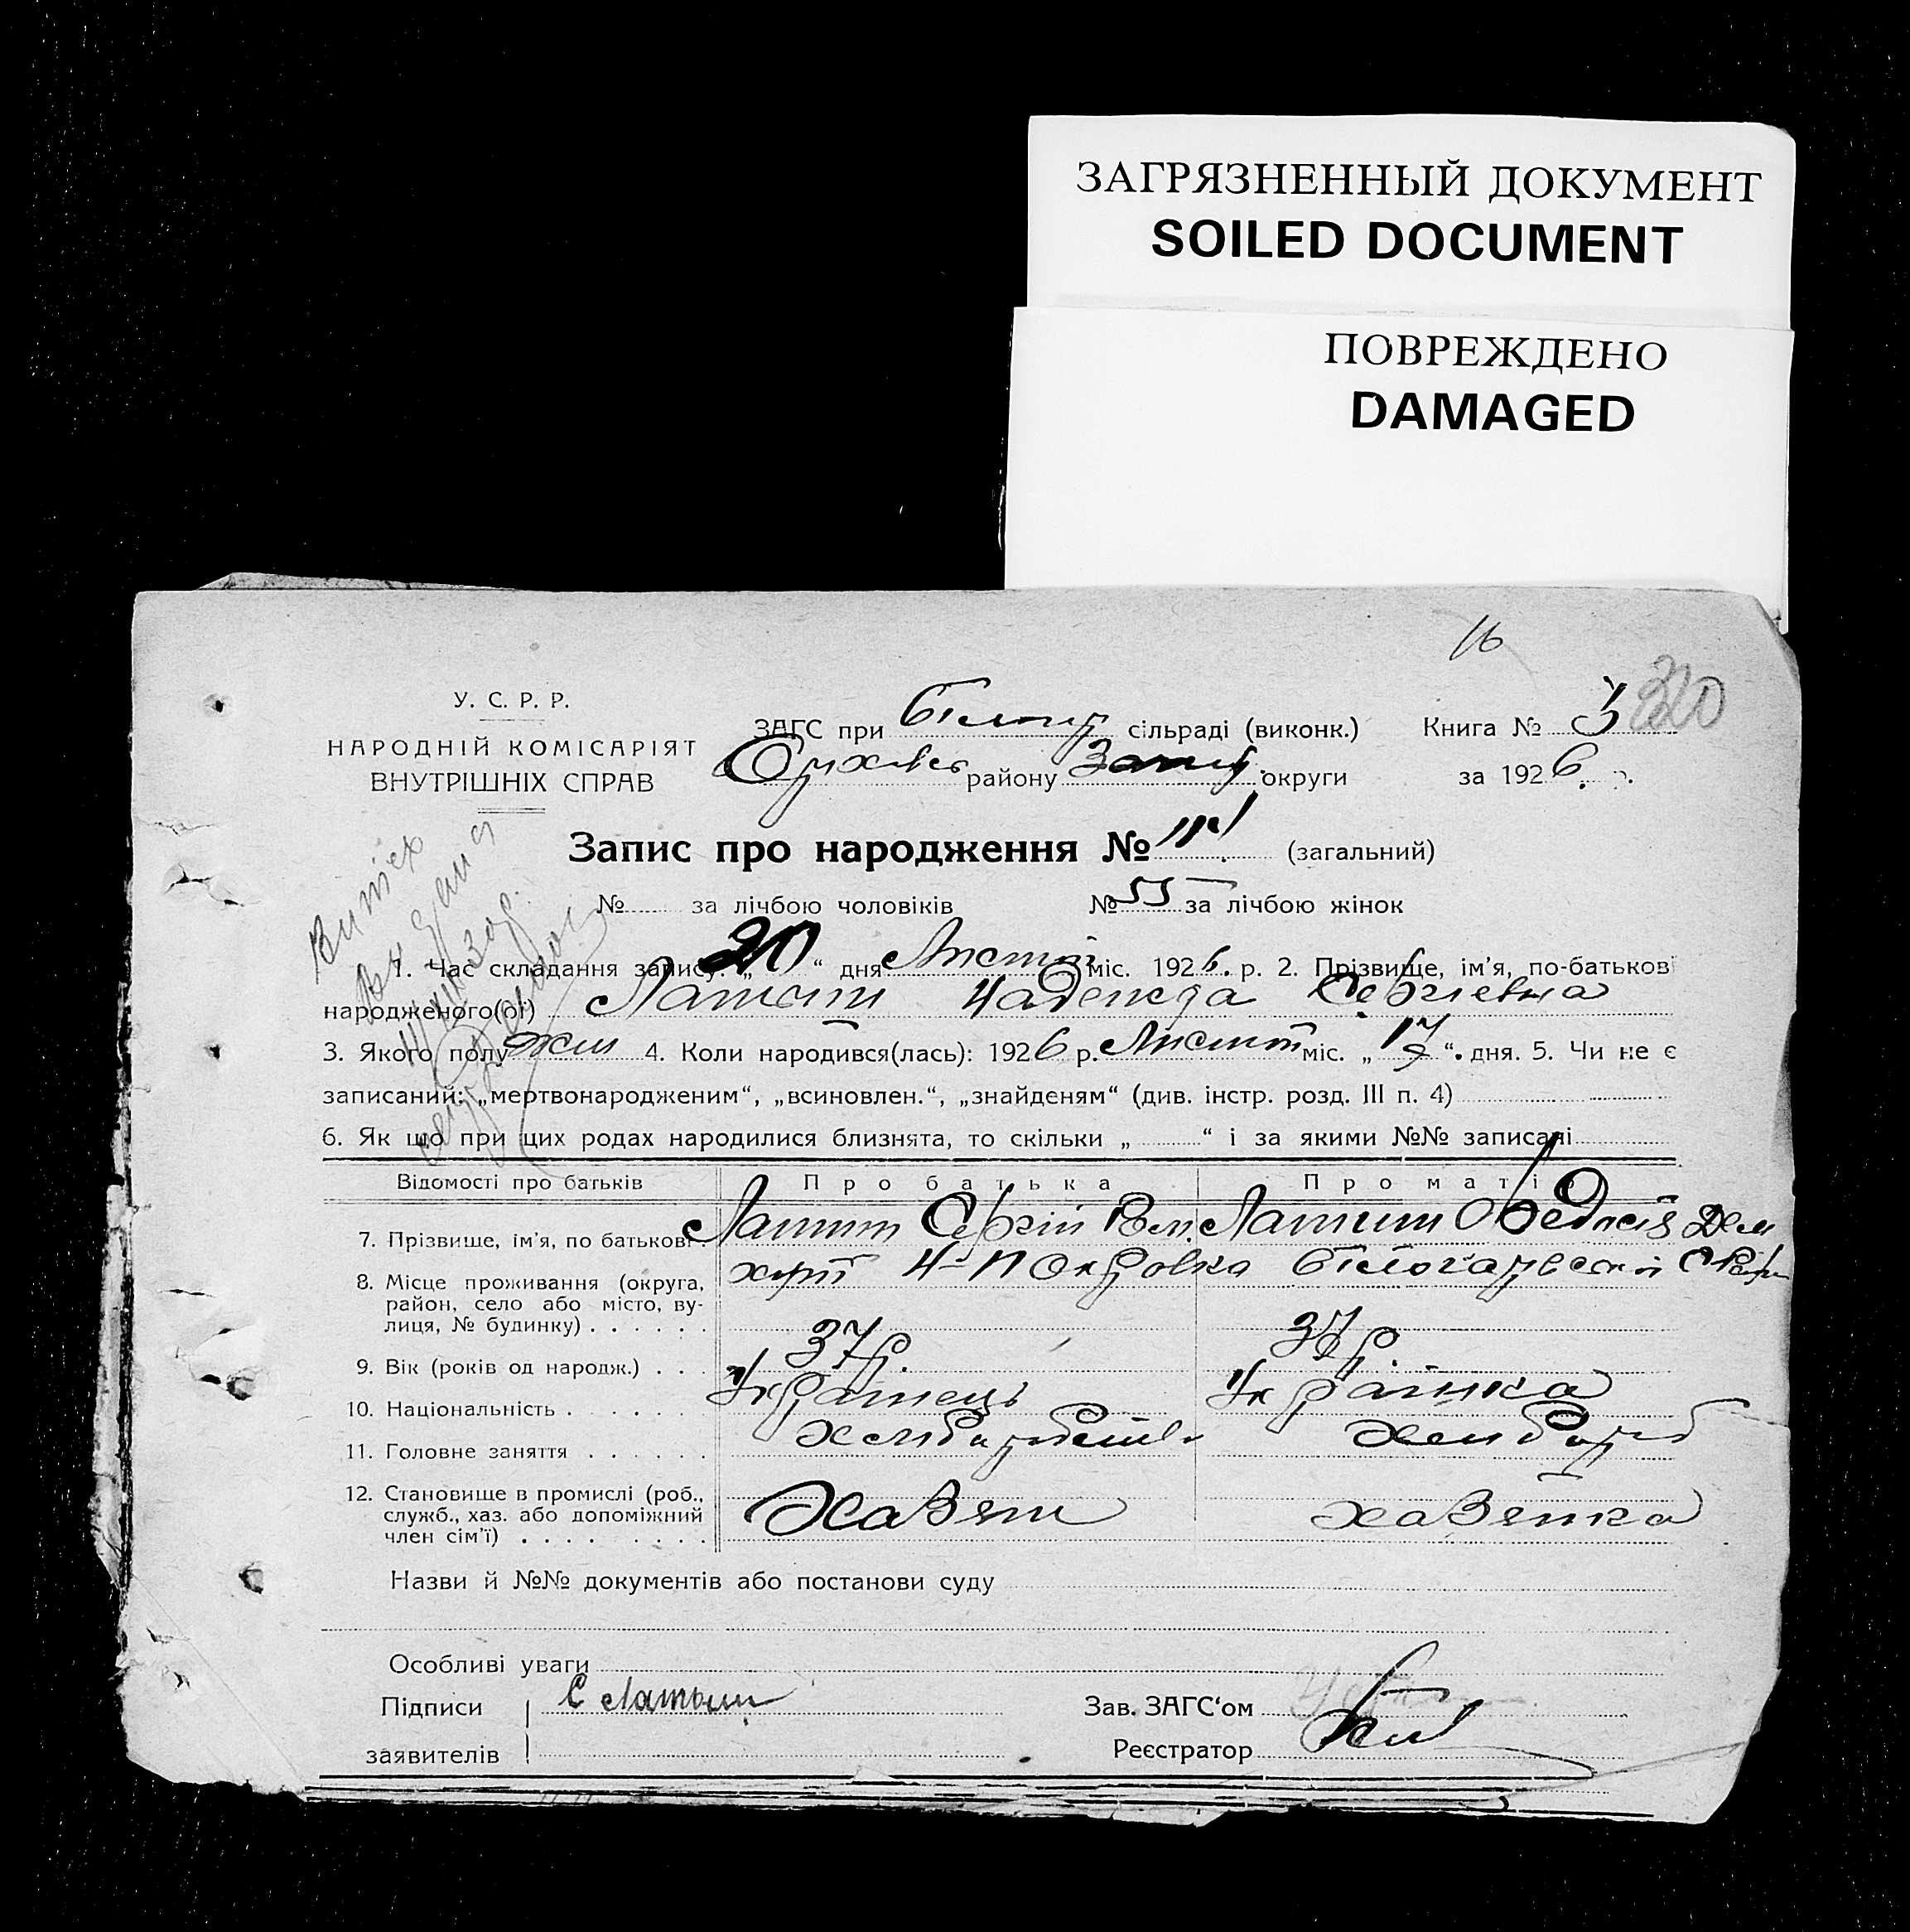 ЗАГРЯЗНЕННЫЙ ДОКУМЕНТ
SOILED DOCUMENT
ПОВРЕЖДЕНО
DAMAGED
16
320
У. С. Р. Р.
НАРОДНІЙ КОМІСАРІЯТ
ВНУТРІШНІХ СПРАВ
ЗАГС при сільраді (виконк.) Книга № 3
Оріхівсь району Запор. округи за 1926 р.
Запис про народження № (загальний)
№ за лічбою чоловіків № 55 за лічбою жінок
1. Час складання запису: „20“ дня Листоп міс. 1926. р. 2. Прізвище, ім'я, по-батькові
народженого(ої) Латыш Надежда Сергіевна
3. Якого полу жін 4. Коли народився(лась): 1926 р. Листоп міс. „17“. дня. 5. Чи не є
записаний: „мертвонародженим“, „всиновлен.“, „знайденям“ (див. інстр. розд. III п. 4)
6. Як що при цих родах народилися близнята, то скільки „ “ і за якими №№ записані
Відомості про батьків Про батька Про матір
7. Прізвище, ім'я, по батькові Латиш Сергій Латиш
8. Місце проживання (округа, район, село або місто, ву- лиця, № будинку) хут Н-Покровка
9. Вік (років од народж.) 37 р. р.
10. Національність Українець Українка
11. Головне заняття Хліборобство Хлібороб
12. Становище в промислі (роб., служб., хаз. або допоміжний член сім'ї) Хазяїн хазяйка
Назви й №№ документів або постанови суду
Особливі уваги
Підписи С Латыш Зав. ЗАГС'ом
заявителів Реєстратор